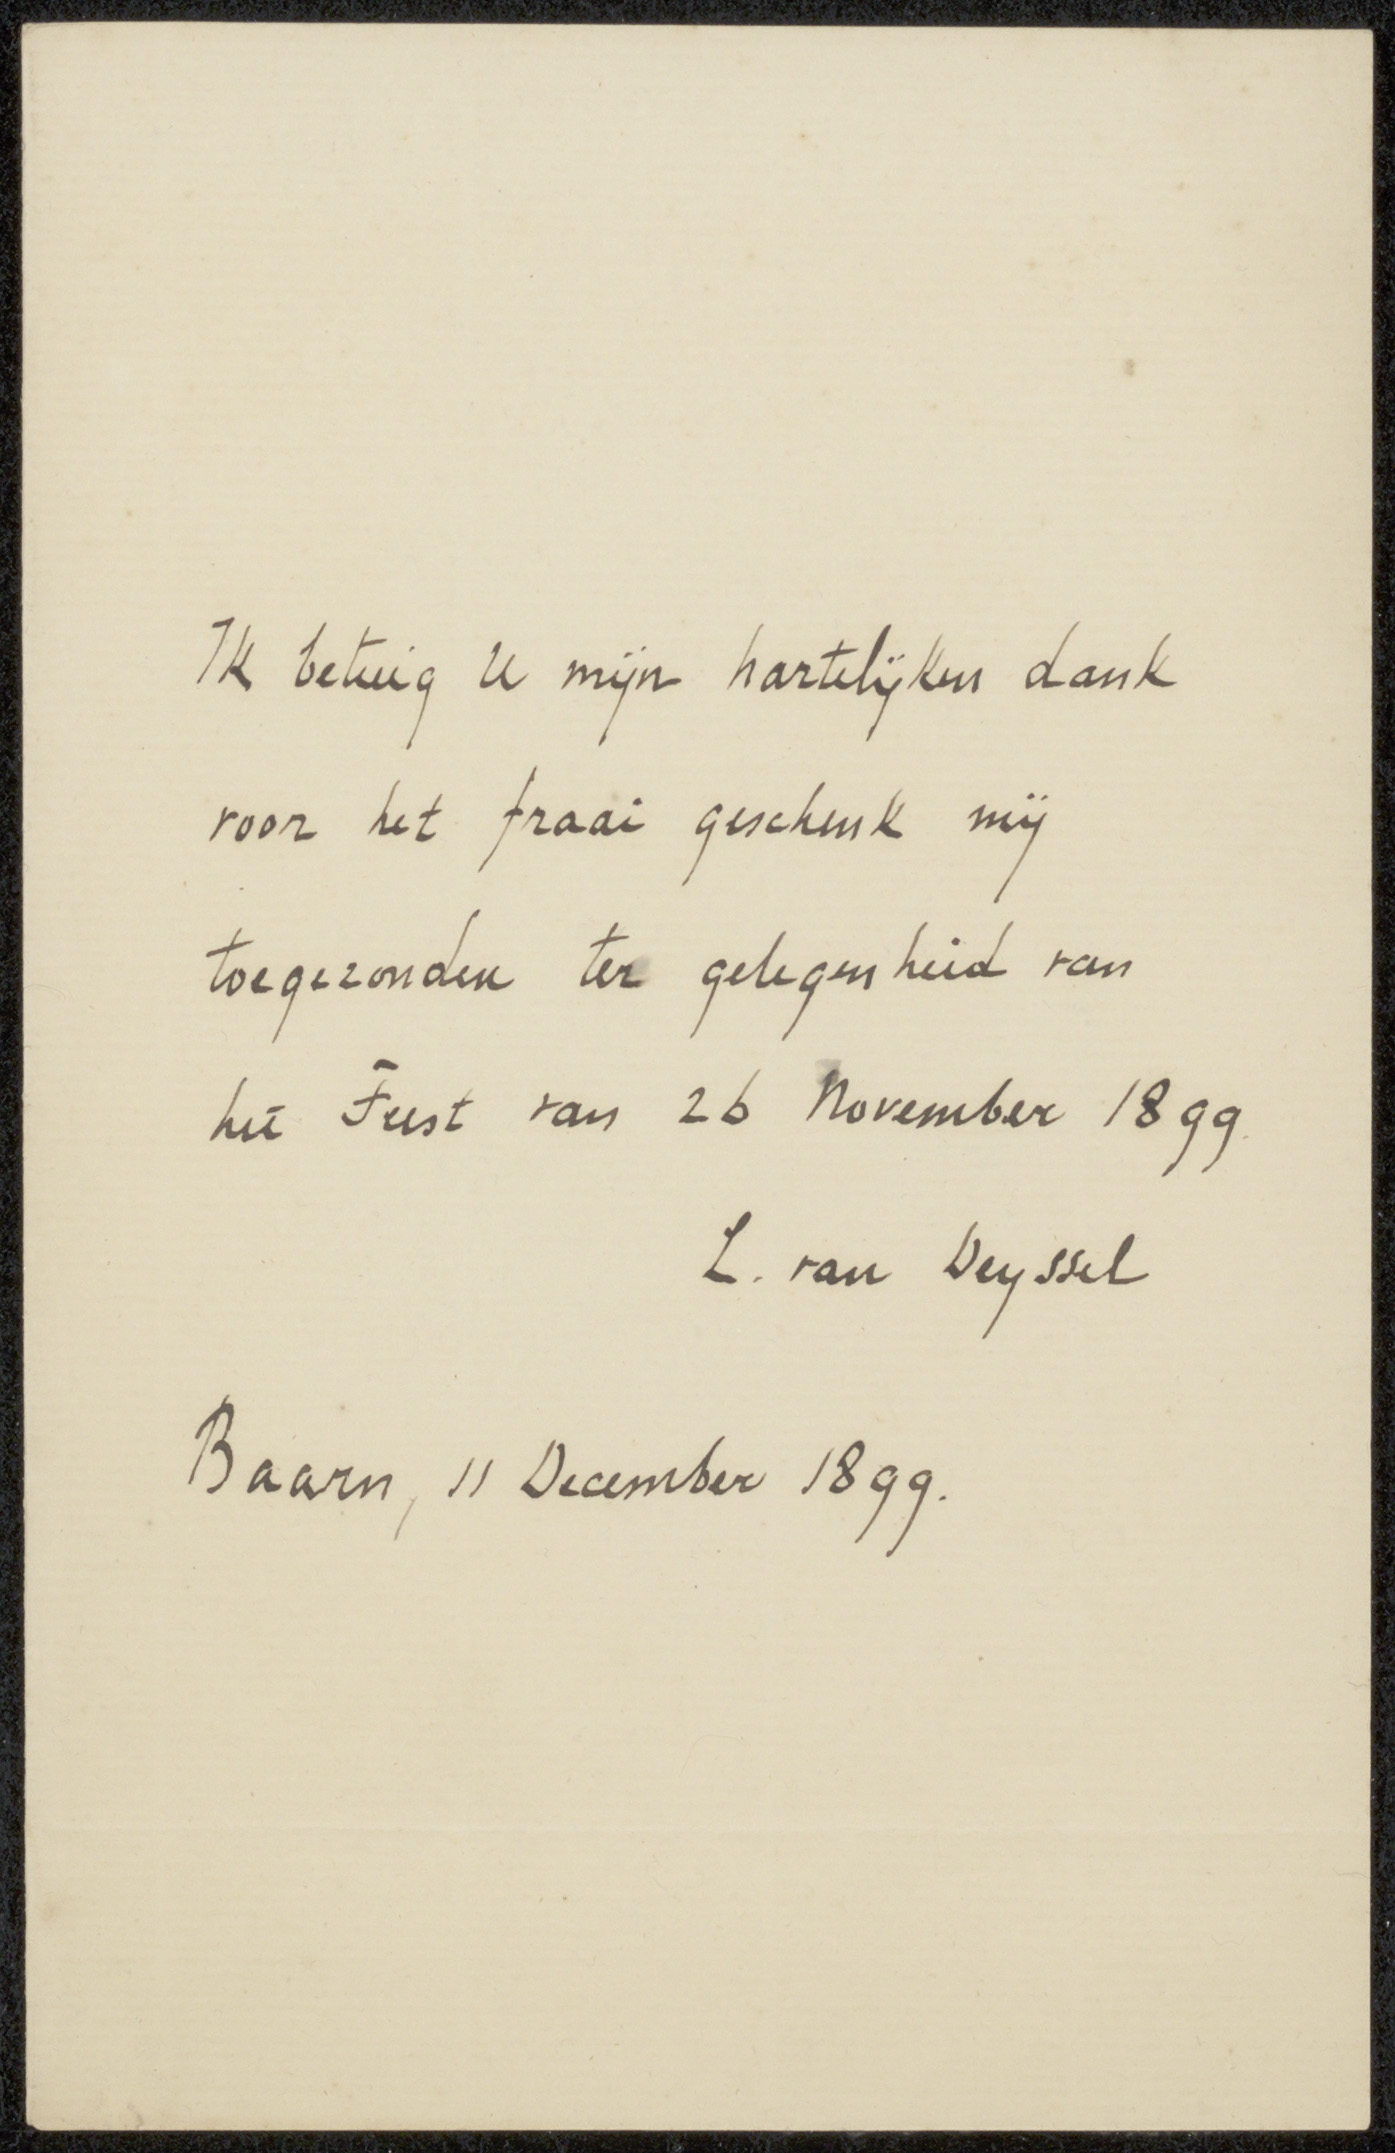 Ik betuig U mijn hartelijken dank
voor het fraai geschenk mij
toegezonden ter gelegenheid van
het Feest van 26 November 1899.
L. van Deyssel
Baarn, 11 December 1899.